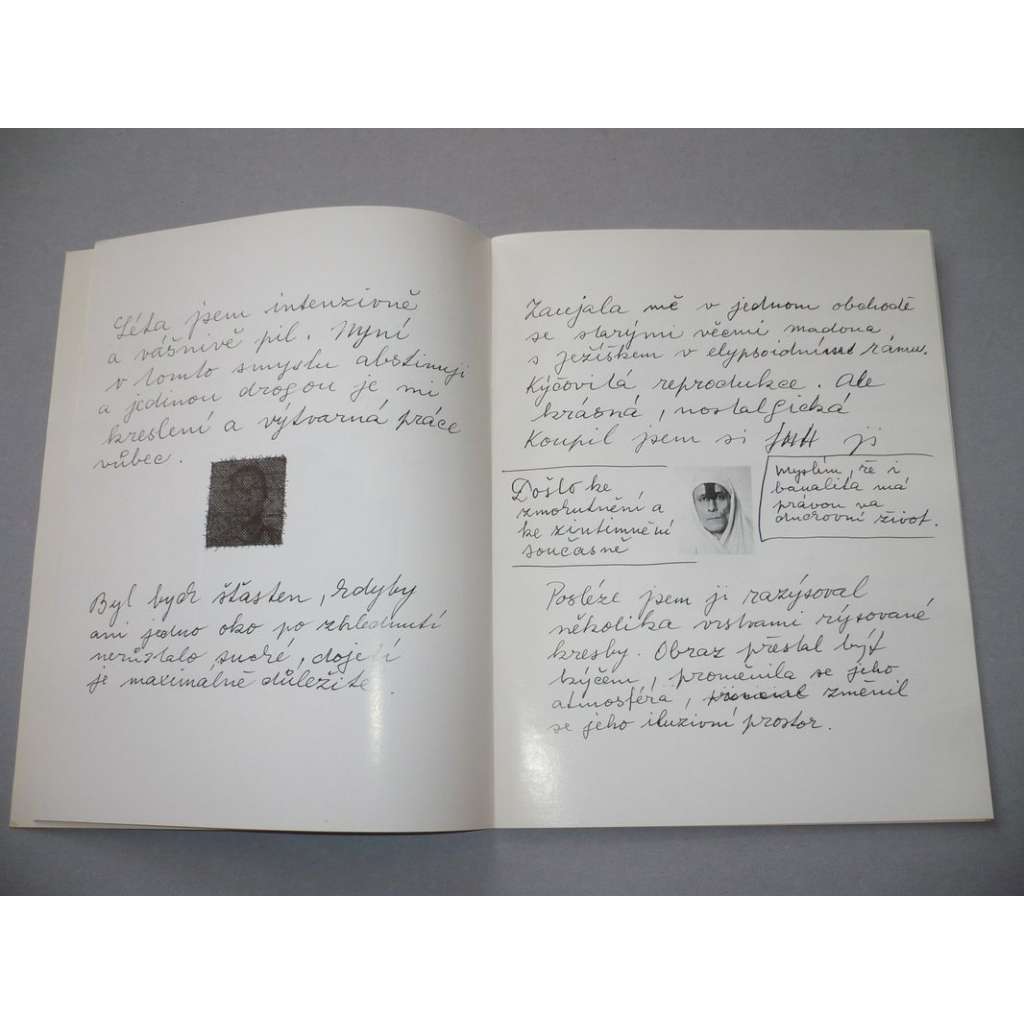 Léta jsem intenzivně
a vášnivě pil. Nyní
v tomto smyslu abstinuji
a jedinou drogou je mi
kreslení a výtvarná práce
vůbec.
Byl bych šťasten, kdyby
ani jedno oko po zhlédnutí
nezůstalo suché, dojetí
je maximálně důležité.
Zaujala mě v jednom obchodě
se starými věcmi madona
s ježíškem v elypsoidním rámu.
Kýčovitá reprodukce. Ale
krásná, nostalgická
Koupil jsem si ji
Došlo ke
zmohutnění a
ke zintimnění
současně
Myslím, že i
banalita má
právo na
duchovní život.
Posléze jsem ji razýsoval
několika vrstvami rýsované
kresby. Obraz přestal být
kýčem, proměnila se jeho
atmosféra, změnil
se jeho iluzivní prostor.